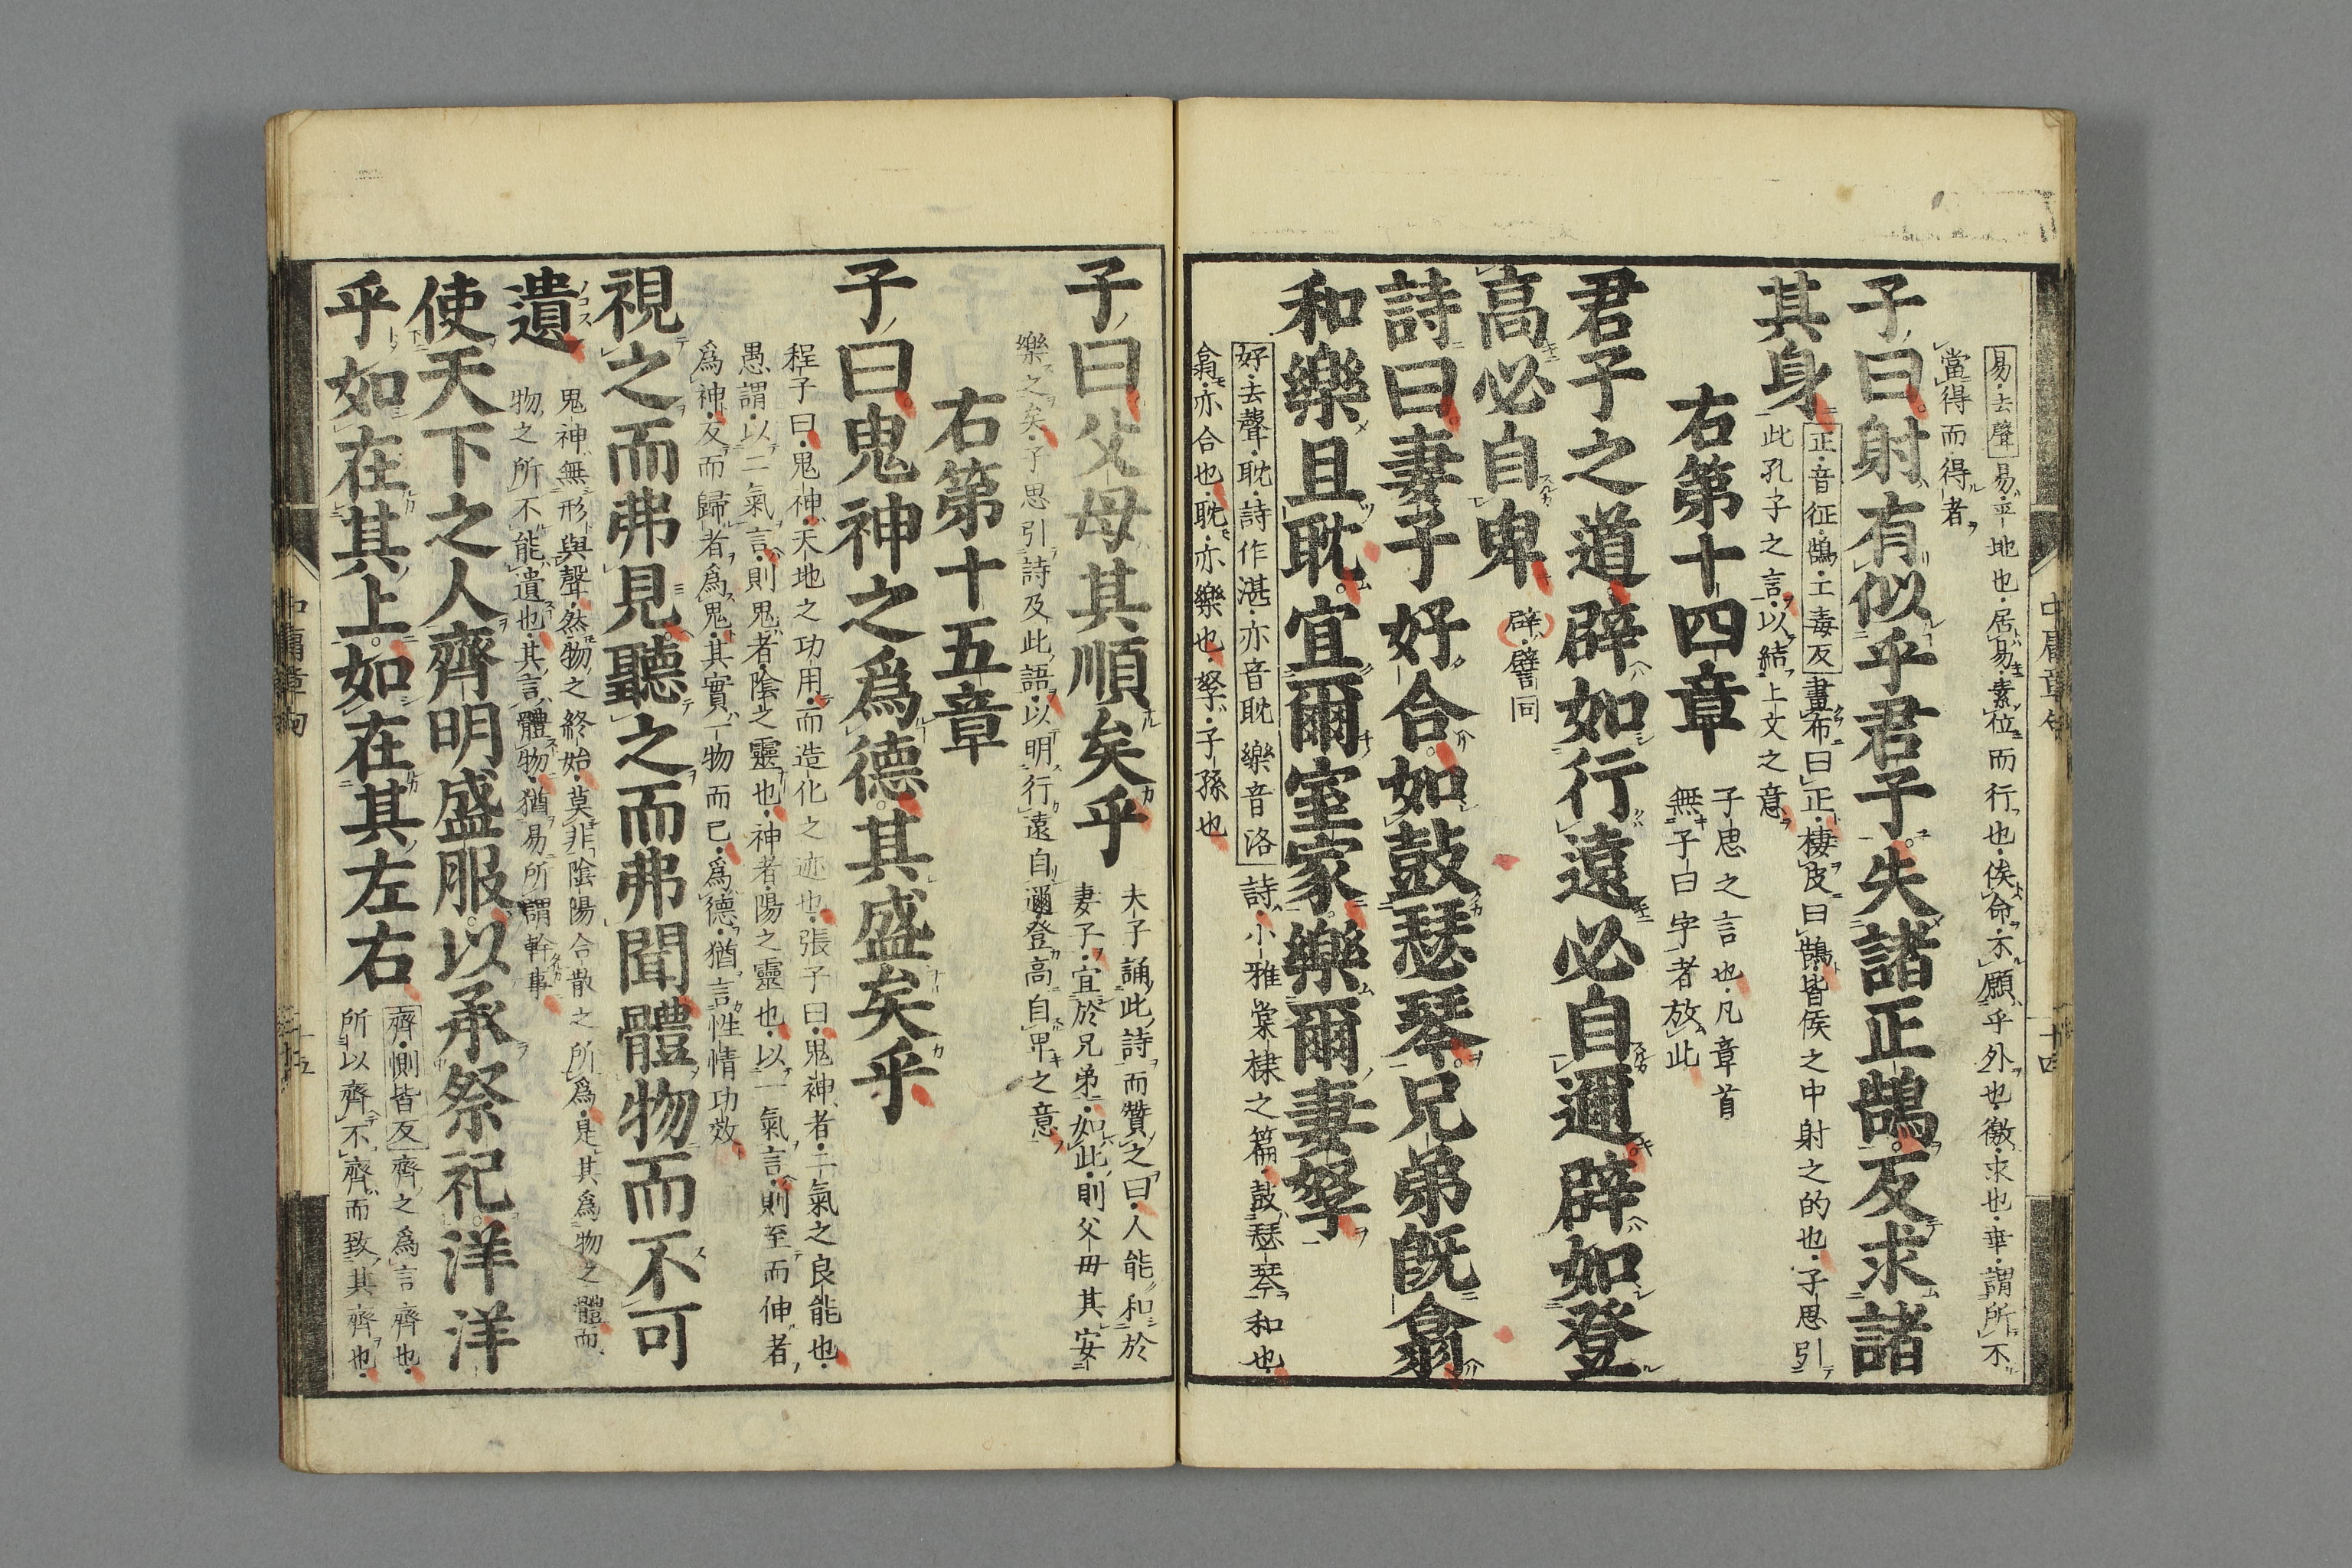 易去聲易平地也居易素位而行也俟命不願乎外也徼求也幸謂所不
當得而得者
子曰射有似乎君子失諸正鵠反求諸
其身
正音征鵠工毒反畫布曰正棲皮曰鵠皆侯之中射之的也子思引
此孔子之言以結上文之意
右第十四章
子思之言也凡章首
無子曰字者放此
君子之道辟如行遠必自邇辟如登
高必自卑
辟譬同
詩曰妻子好合如鼓瑟琴兄弟既翕
和樂且耽宜爾室家樂爾妻孥
好去聲耽詩作湛亦音耽樂音洛詩小雅棠棣之篇鼓瑟琴和也
翕亦合也耽亦樂也孥子孫也
中庸章句
十四
子曰父母其順矣乎
夫子誦此詩而贊之曰人能和於
妻子宜於兄弟如此則父母其安
樂之矣子思引詩及此語以明行遠自邇登高自卑之意
右第十五章
子曰鬼神之爲德其盛矣乎
程子曰鬼神天地之功用而造化之迹也張子曰鬼神者二氣之良能也
愚謂以二氣言則鬼者陰之靈也神者陽之靈也以一氣言則至而伸者
爲神反而歸者爲鬼其實一物而已爲德猶言性情功效
視之而弗見聽之而弗聞體物而不可
遺
鬼神無形與聲然物之終始莫非陰陽合散之所爲是其爲物之體而
物之所不能遺也其言體物猶易所謂幹事
使天下之人齊明盛服以承祭祀洋洋
乎如在其上如在其左右
齊側皆反齊之爲言齊也
所以齊不齊而致其齊也
中庸章句
十五